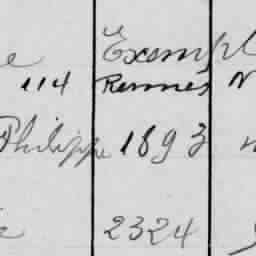 e Exempl
114 Rennes N
Philippe 1893
2324